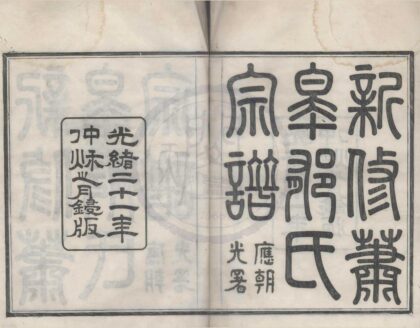 新修蕭
皋氏
宗譜
應朝
光署
光緒二十一年
仲秌之月鐫版